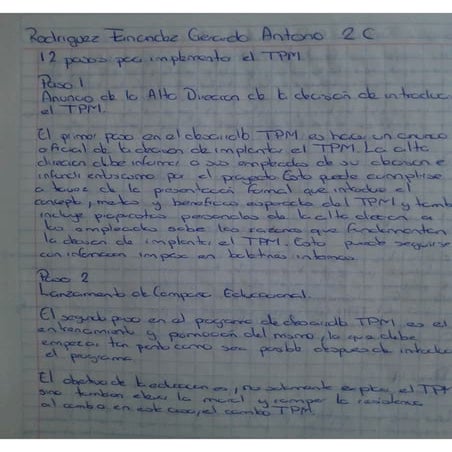 Rodriguez Fernandez Gerardo Antonio 2 C
12 pasos para implementar el TPM
Paso 1
Anuncio de la Alta Direccion de la decisión de introducir
el TPM.
El primer paso en el desarrollo TPM es hacer un anuncio
oficial de la decision de implantar el TPM. La alta
direccion debe informar a sus empleados de su decision e
infundir entusiasmo por el proyecto. Esto puede cumplirse
a traves de la presentación formal que introduce el
concepto, metas y beneficios esperados del TPM y tamb
incluye propuestas personales de la alta direccion a
los empleados sobre las razones que fundamentan
la decision de implantar el TPM. Esto puede seguirse
con informacion impresa en boletines internos.
Paso 2
Lanzamiento de Campaña Educacional.
El segundo paso en el programa de desarrollo TPM es el
entrenamiento y promoción del mismo, lo que debe
empezar tan pronto como sea posible despues de introducir
el programa.
El objetivo de la educacion es, no solamente explicar el TPM
sino tambien elevar la moral y romper la resistencia
al cambio en este caso, el cambio TPM.